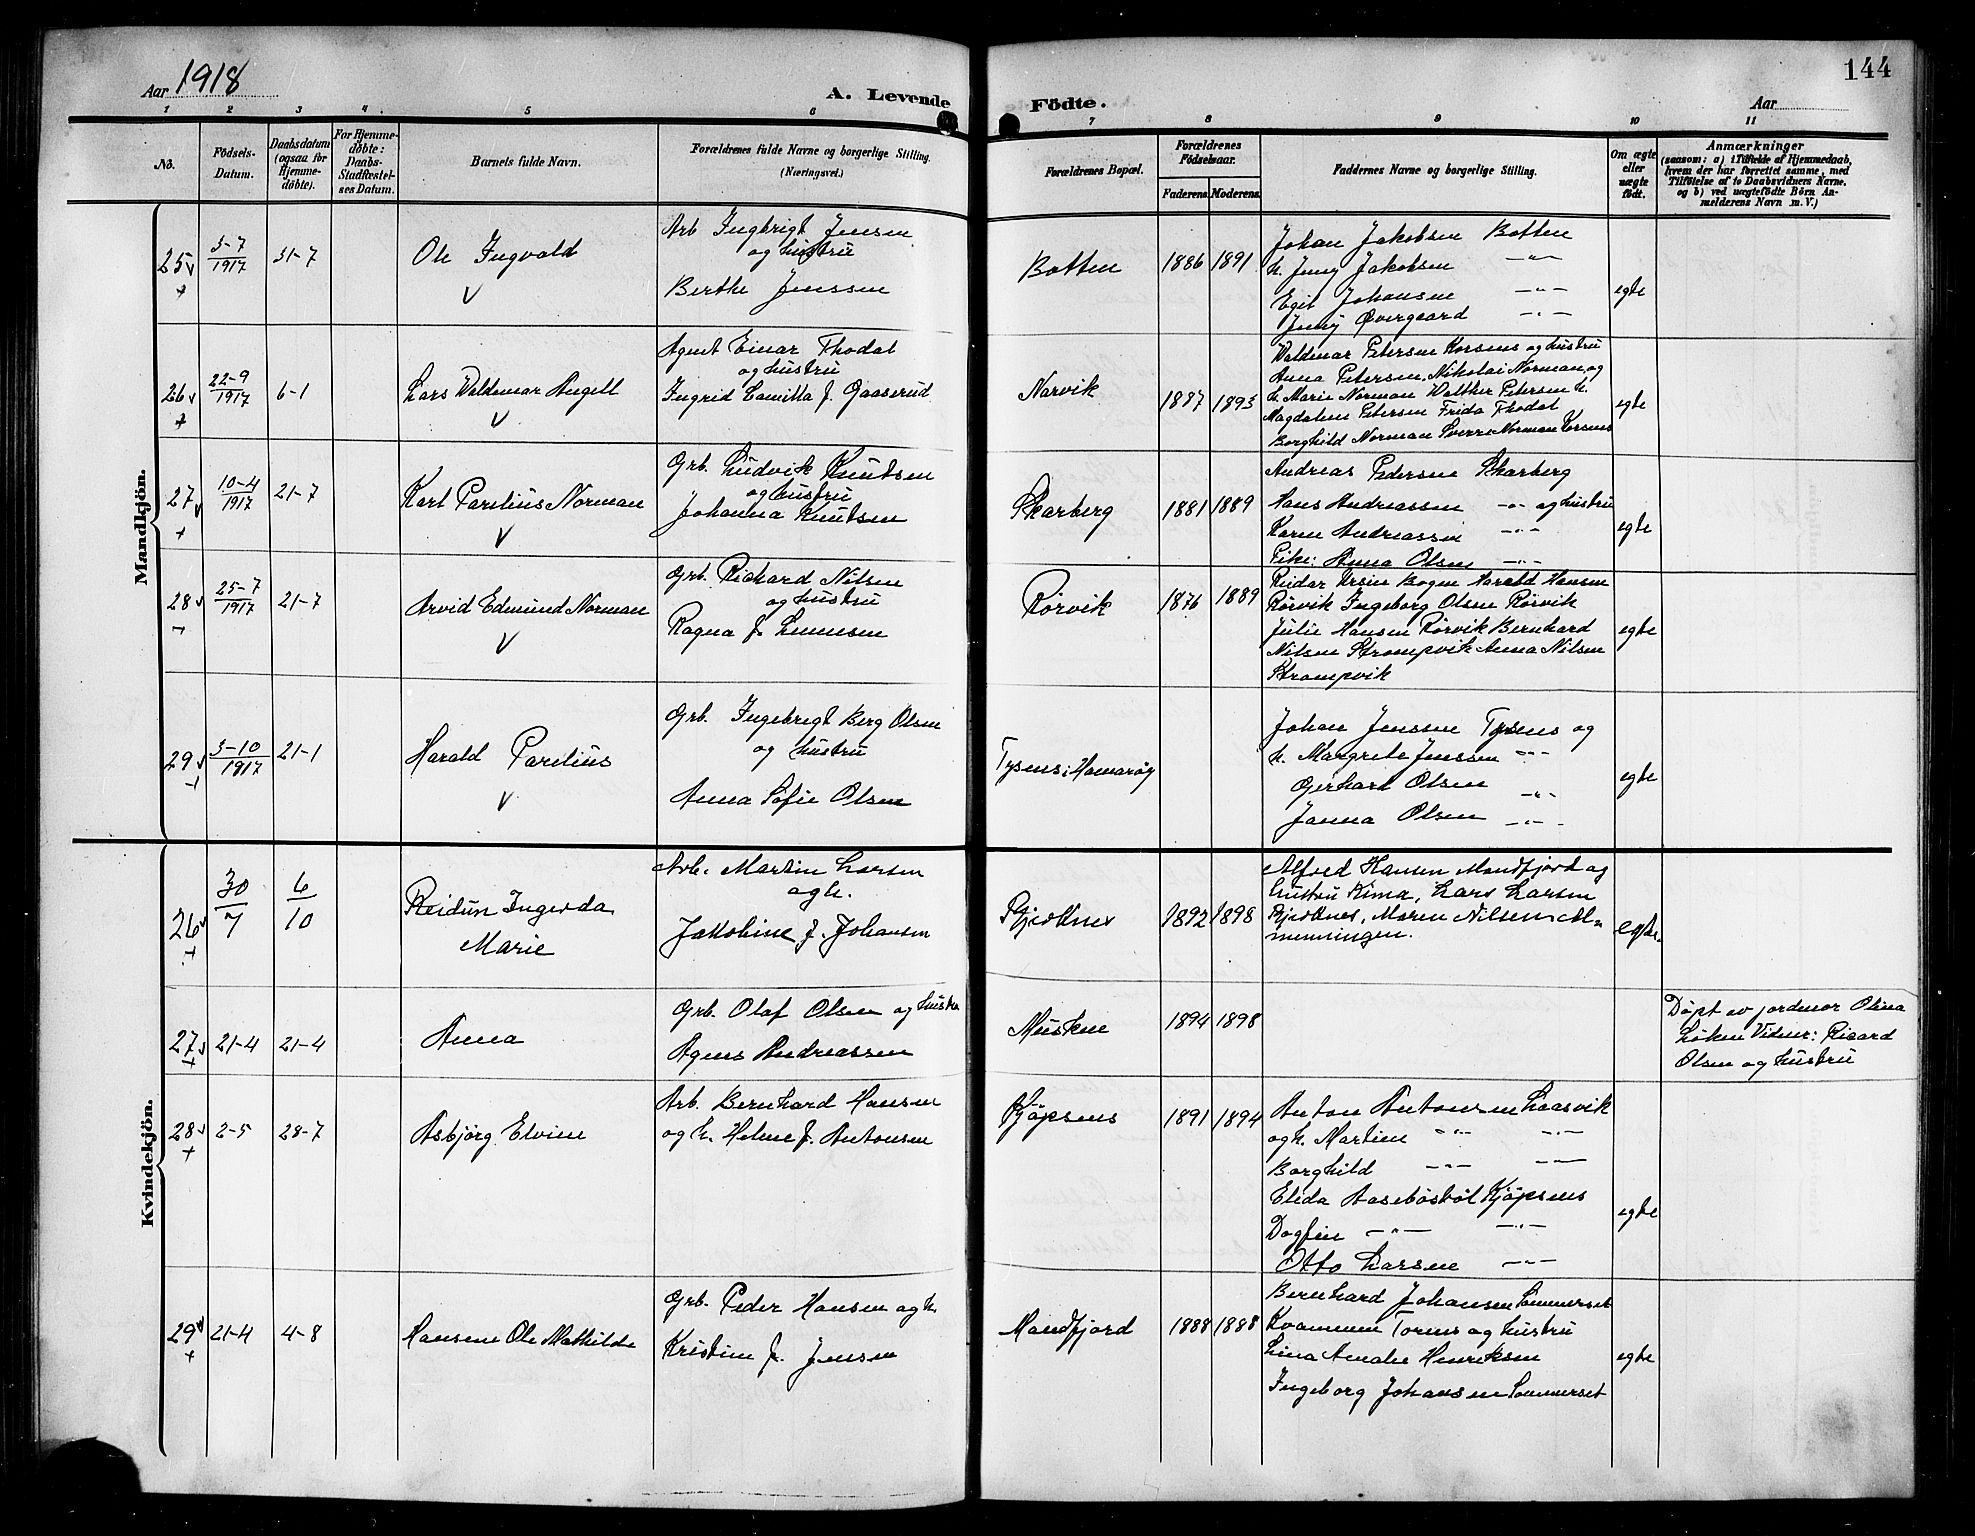 Aar 1918
A. Levende
Födte.
Aar
144
1 2 3 4 5 6 7 8 9 10 11
Nö.
Födsels-
Datum.
Daabsdatum
(ogsaa for
Hjemme-
döbte).
For Hjemme-
döbte:
Daabs-
Stadfæstel-
ses Datum.
Barnets fulde Navn.
Forældrenes fulde Navne og borgerlige Stilling.
(Næringsvei.)
Forældrenes Bopæl.
Forældrenes
Födselsaar.
Faderens. Moderens.
Faddernes Navne og borgerlige Stilling.
Om ægte
eller
uægte
födt.
Anmærkninger
(saasom: a) i Tilfælde af Hjemmedaab,
hvem der har forrettet samme, med
Tilföielse af to Daabsvidners Navne,
og b) ved uægtefödte Börn An-
melderens Navn m. V.)
Mandkjön.
25
3-7
1917
31-7
Ole Ingvald
Arb Ingbrigt Jensen
og hustru
Berthe Jenssen
Botten
1886 1891
Johan Jakobsen Botten
h. Jenny Jakobsen -"-
Egil Johansen -"-
Jenny Øvergaard -"-
egte
26
22-9
1917
6-1
Lars Waldemar Angell
Agent Einar Thodal
og hustru
Ingrid Camilla f. Gaaserud
Narvik
1887 1893
Waldemar Petersen Korsnes og hustru
Anna Petersen, Nikolai Norman og
h. Marie Norman Walther Petersen h.
Magdalene Petersen Frida Thodal
Borghild Norman Sverre Norman Korsnes
egte
27
10-4
1917
21-7
Karl Parelius Norman
Grb. Ludvik Knutsen
og hustru
Johanna Knutsen
Skarberg
1881 1889
Andreas Pedersen Skarberg
Hans Andreassen -"- og hustru
Karen Andreassen -"-
Pike: Anna Olsen -"-
egte
28
25-7
1917
21-7
Arvid Edmund Norman
Grb. Richard Nilsen
og hustru
Ragna f.
Rørvik
1876 1889
Reidar Ursin Bogen Harald Hansen
Rørvik Ingeborg Olsen Rørvik
Julie Hansen Rørvik Bernhard
Nilsen Strompvik Anna Nilsen
Strompvik
egte
29
3-10
1917
21-1
Harald Parelius
Grb. Ingebrigt Berg Olsen
og hustru
Anna Sofie Olsen
Tysnes i Hamarøy
Johan Jenssen Tysnes og
h. Margrete Jenssen -"-
Gerhart Olsen -"-
Janna Olsen -"-
egte
Kvindekjön.
26
30
7
6
10
Reidun Ingerda
Marie
Arb. Martin Larsen
og h.
Jakobine f. Johansen
Kjerknes
1892 1898
Alfred Hansen Mandfjord og
hustru Kima, Lars Larsen
Kjerknes, Maren Nilsen Al-
menningen.
egte.
27
21-4
21-4
Anna
Grb. Olaf Olsen og hustru
Agnes Andreassen
Muskne
1894 1898
Døpt av jordmor Olina
Løken Vidner: Ricard
Olsen og hustru
28
2-5
28-7
Asbjørg Elvine
Arb. Bernhard Hansen
og h. Helene f. Antonsen
Kjøpsnes
1891 1894
Anton Antonsen Laasvik
og h. Martine -"- -"-
Borghild -"- -"-
Elida Aasebøstøl Kjøpsnes
Dagfin -"- -"-
Otto Larsen -"-
egte
29
21-4
4-8
Hansene Ole Mathilde
Grb. Peder Hansen og h.
Kristine f. Jensen
Mandfjord
1888 1888
Bernhard Johansen Sommerset
Kvammen Tornes og hustru
Lina Amalie Henriksen
Ingeborg Johansen Sommerset
egte